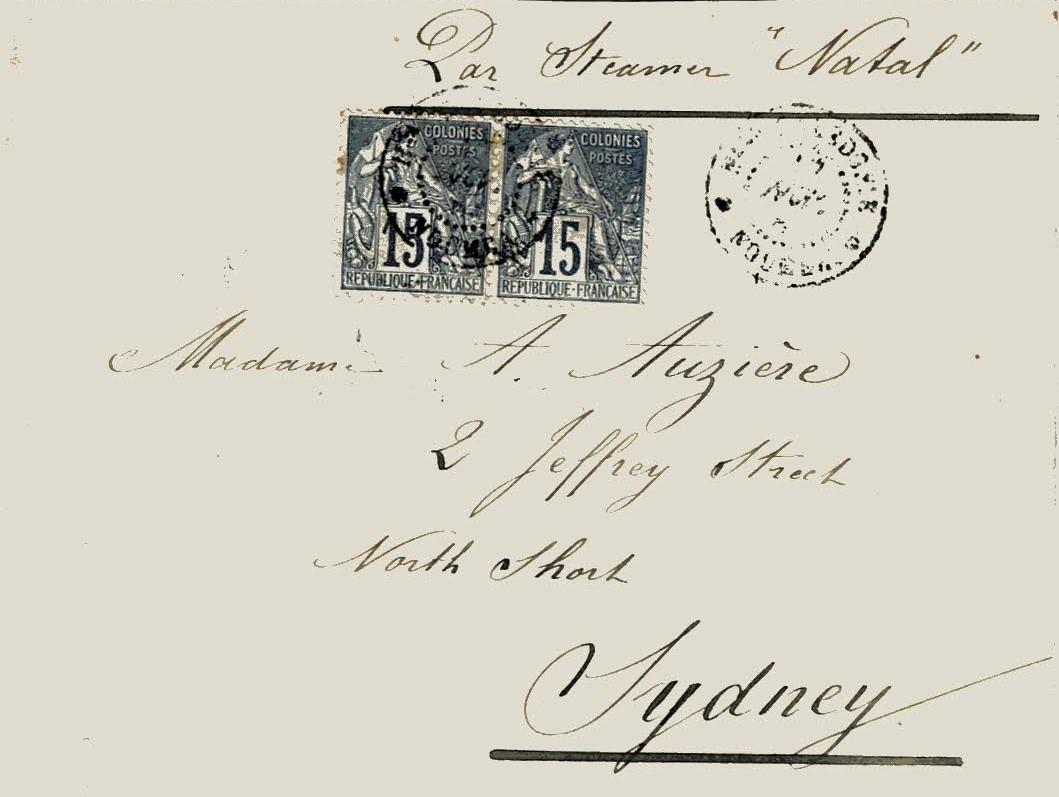 Par Steamer "Natal"
COLONIES
POSTES
15
REPUBLIQUE·FRANÇAISE
COLONIES
POSTES
15
REPUBLIQUE·FRANÇAISE
NOUMEA
NOV.
NOUMEA
Madame A. Auzière
2 Jeffrey Street
North Short
Sydney